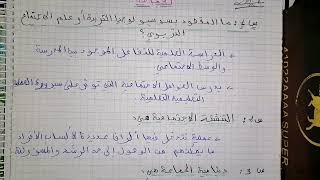 س1: ما المقصود بسوسيولوجيا التربية أو علم الاجتماع
التربوي؟
الدراسة العلمية للتفاعل الموجود بين المدرسة
والوسط الاجتماعي
يدرس العوامل الاجتماعية التي تؤثر على سيرورة
التعليمية
س2: التنشئة الاجتماعية هي:
عملية تتدخل فيها أطراف عديدة لاكساب الأفراد
ما يمكنهم من الوصول إلى الرشد
س3: دينامية الجماعة هي: